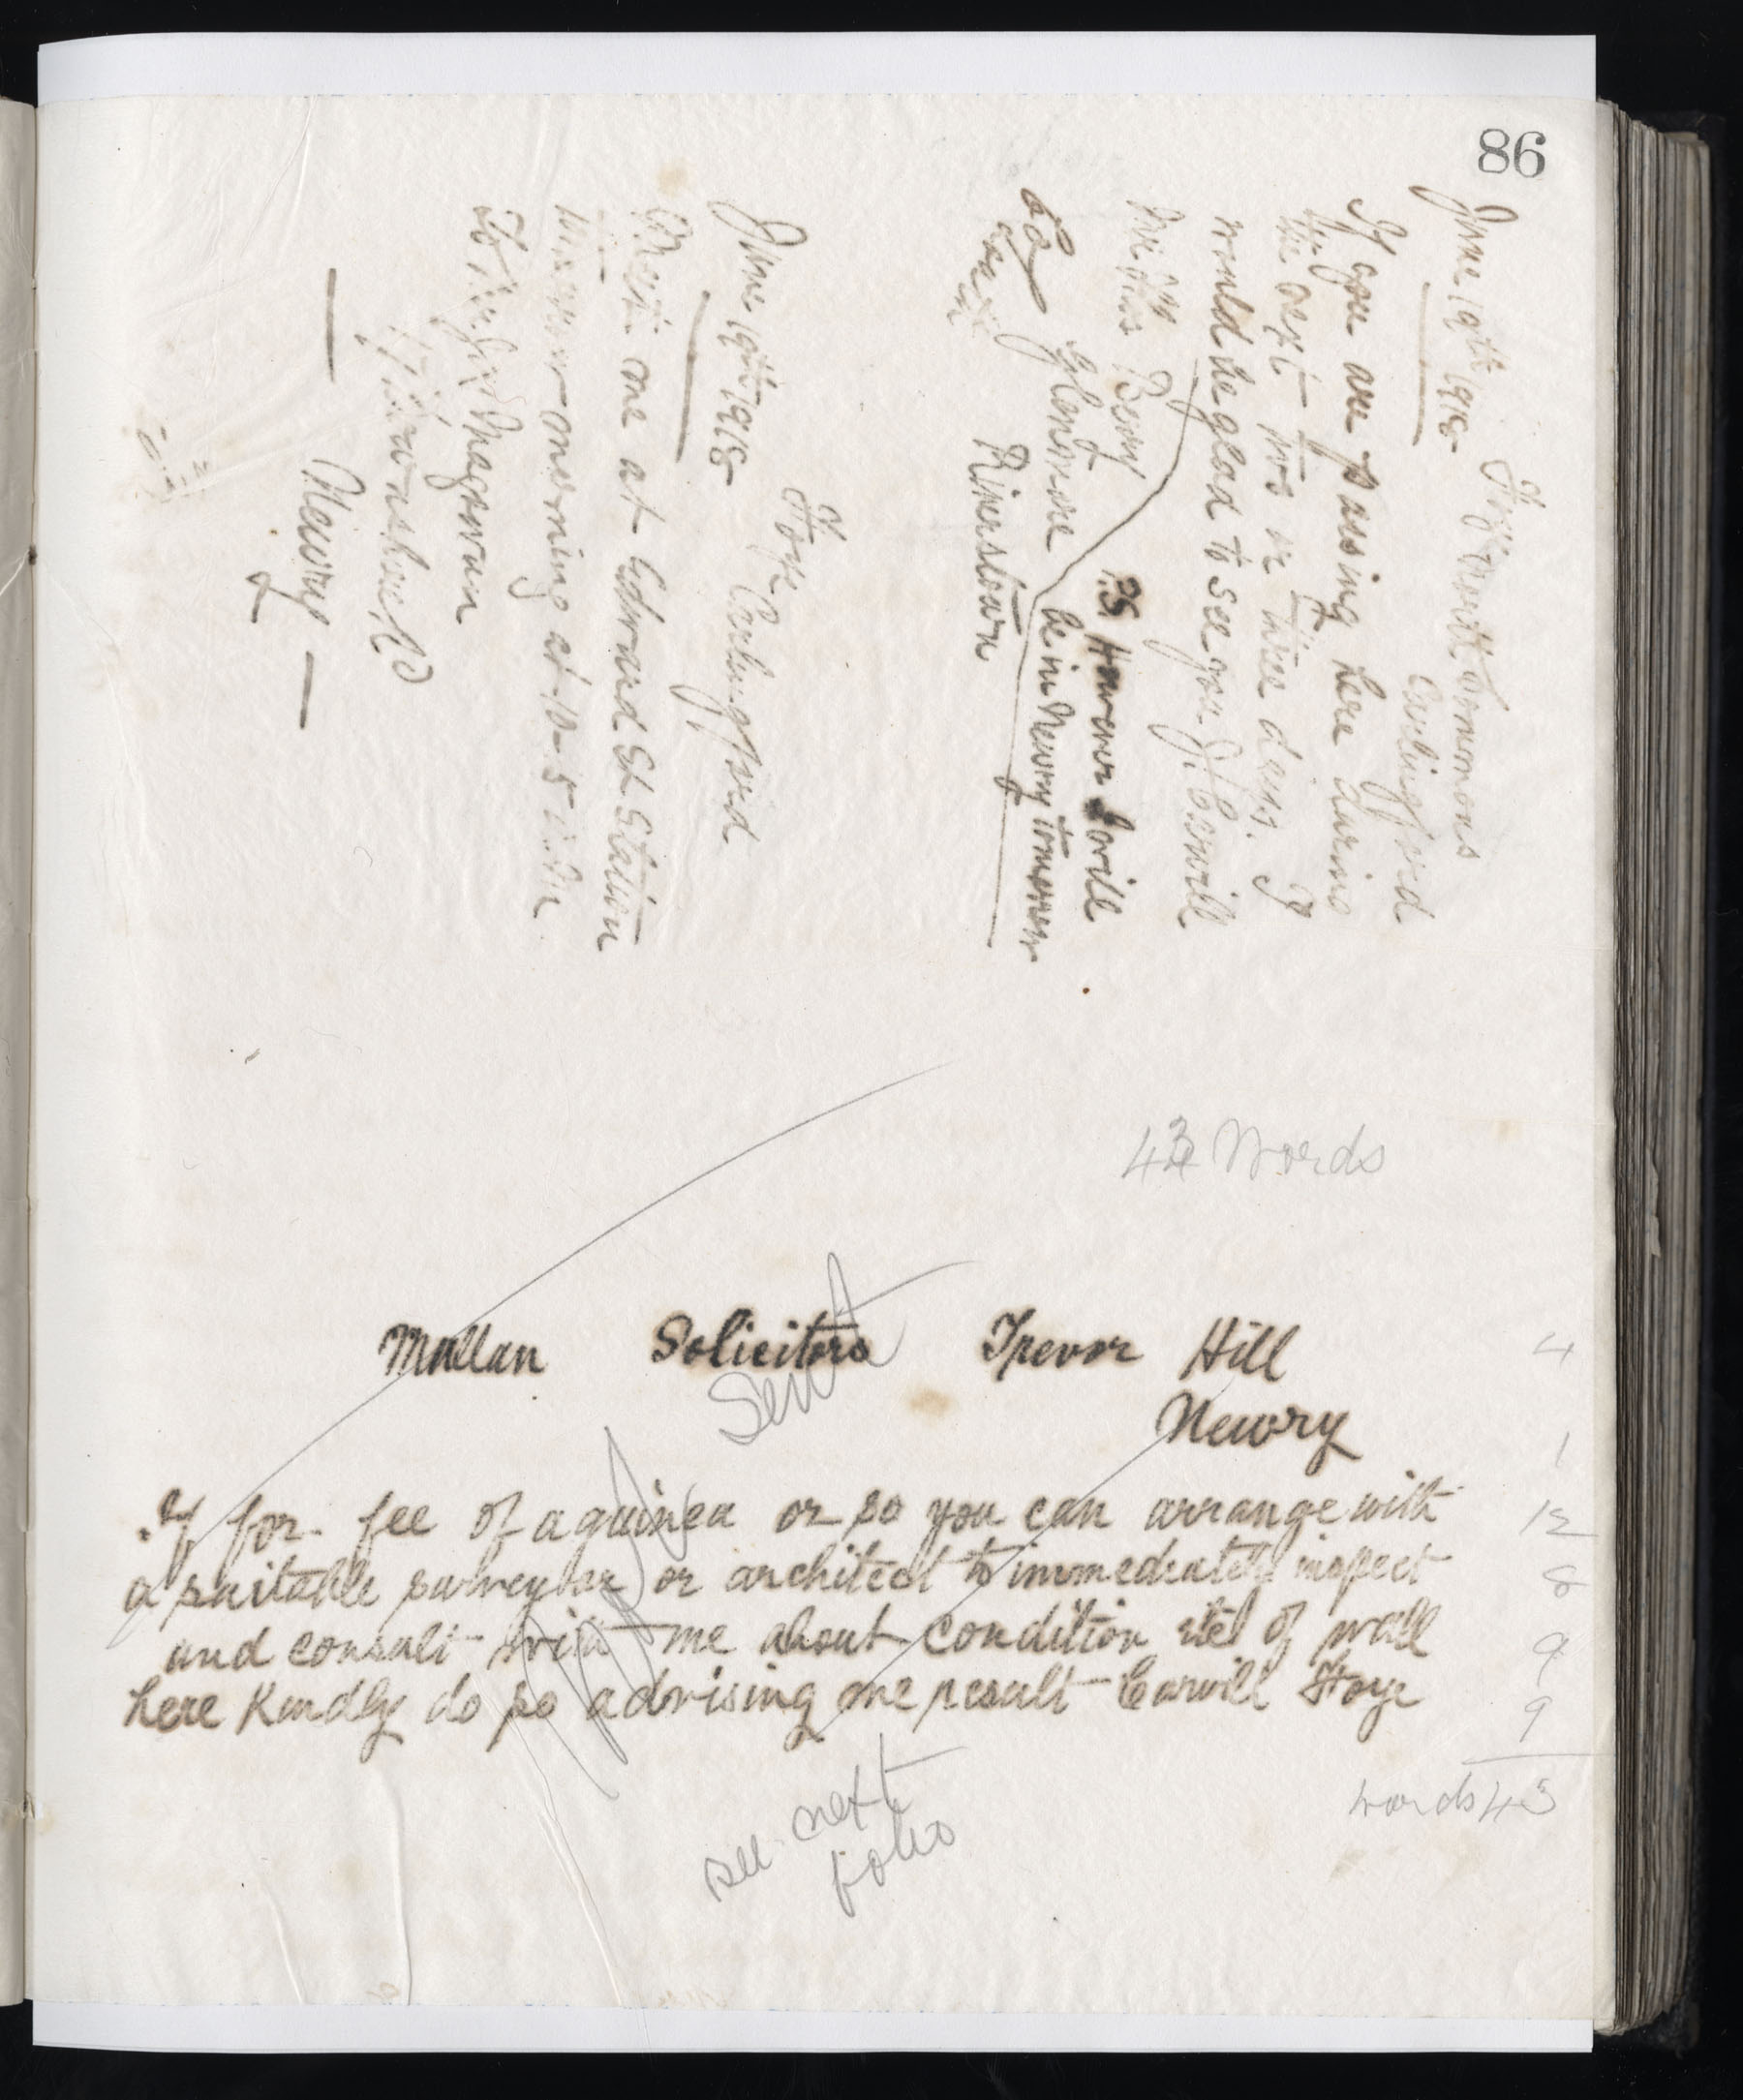 86
Omeath Commons
Carlingford
June 19th 1918
If you are passing here during
the next two or three days. I
would be glad to see you J. Carvill
Mr Thos Berry
Glenmore
Riverstown
P.S However I will
be in Newry tomorrow
Carlingford
June 19th 1918
Meet me at Edward St Station
morning at 10-5
Magowan
Newry
43 Words
Mullan Solicitors Trevor Hill 4
Sent
Newry 1
If for fee of a guinea or so you can arrange with 12
a suitable surveyor or architect to immediately inspect 8
and consult with me about condition etc of wall 9
here Kindly do so advising me result Carvill Hoye 9
words 43
see next
folio